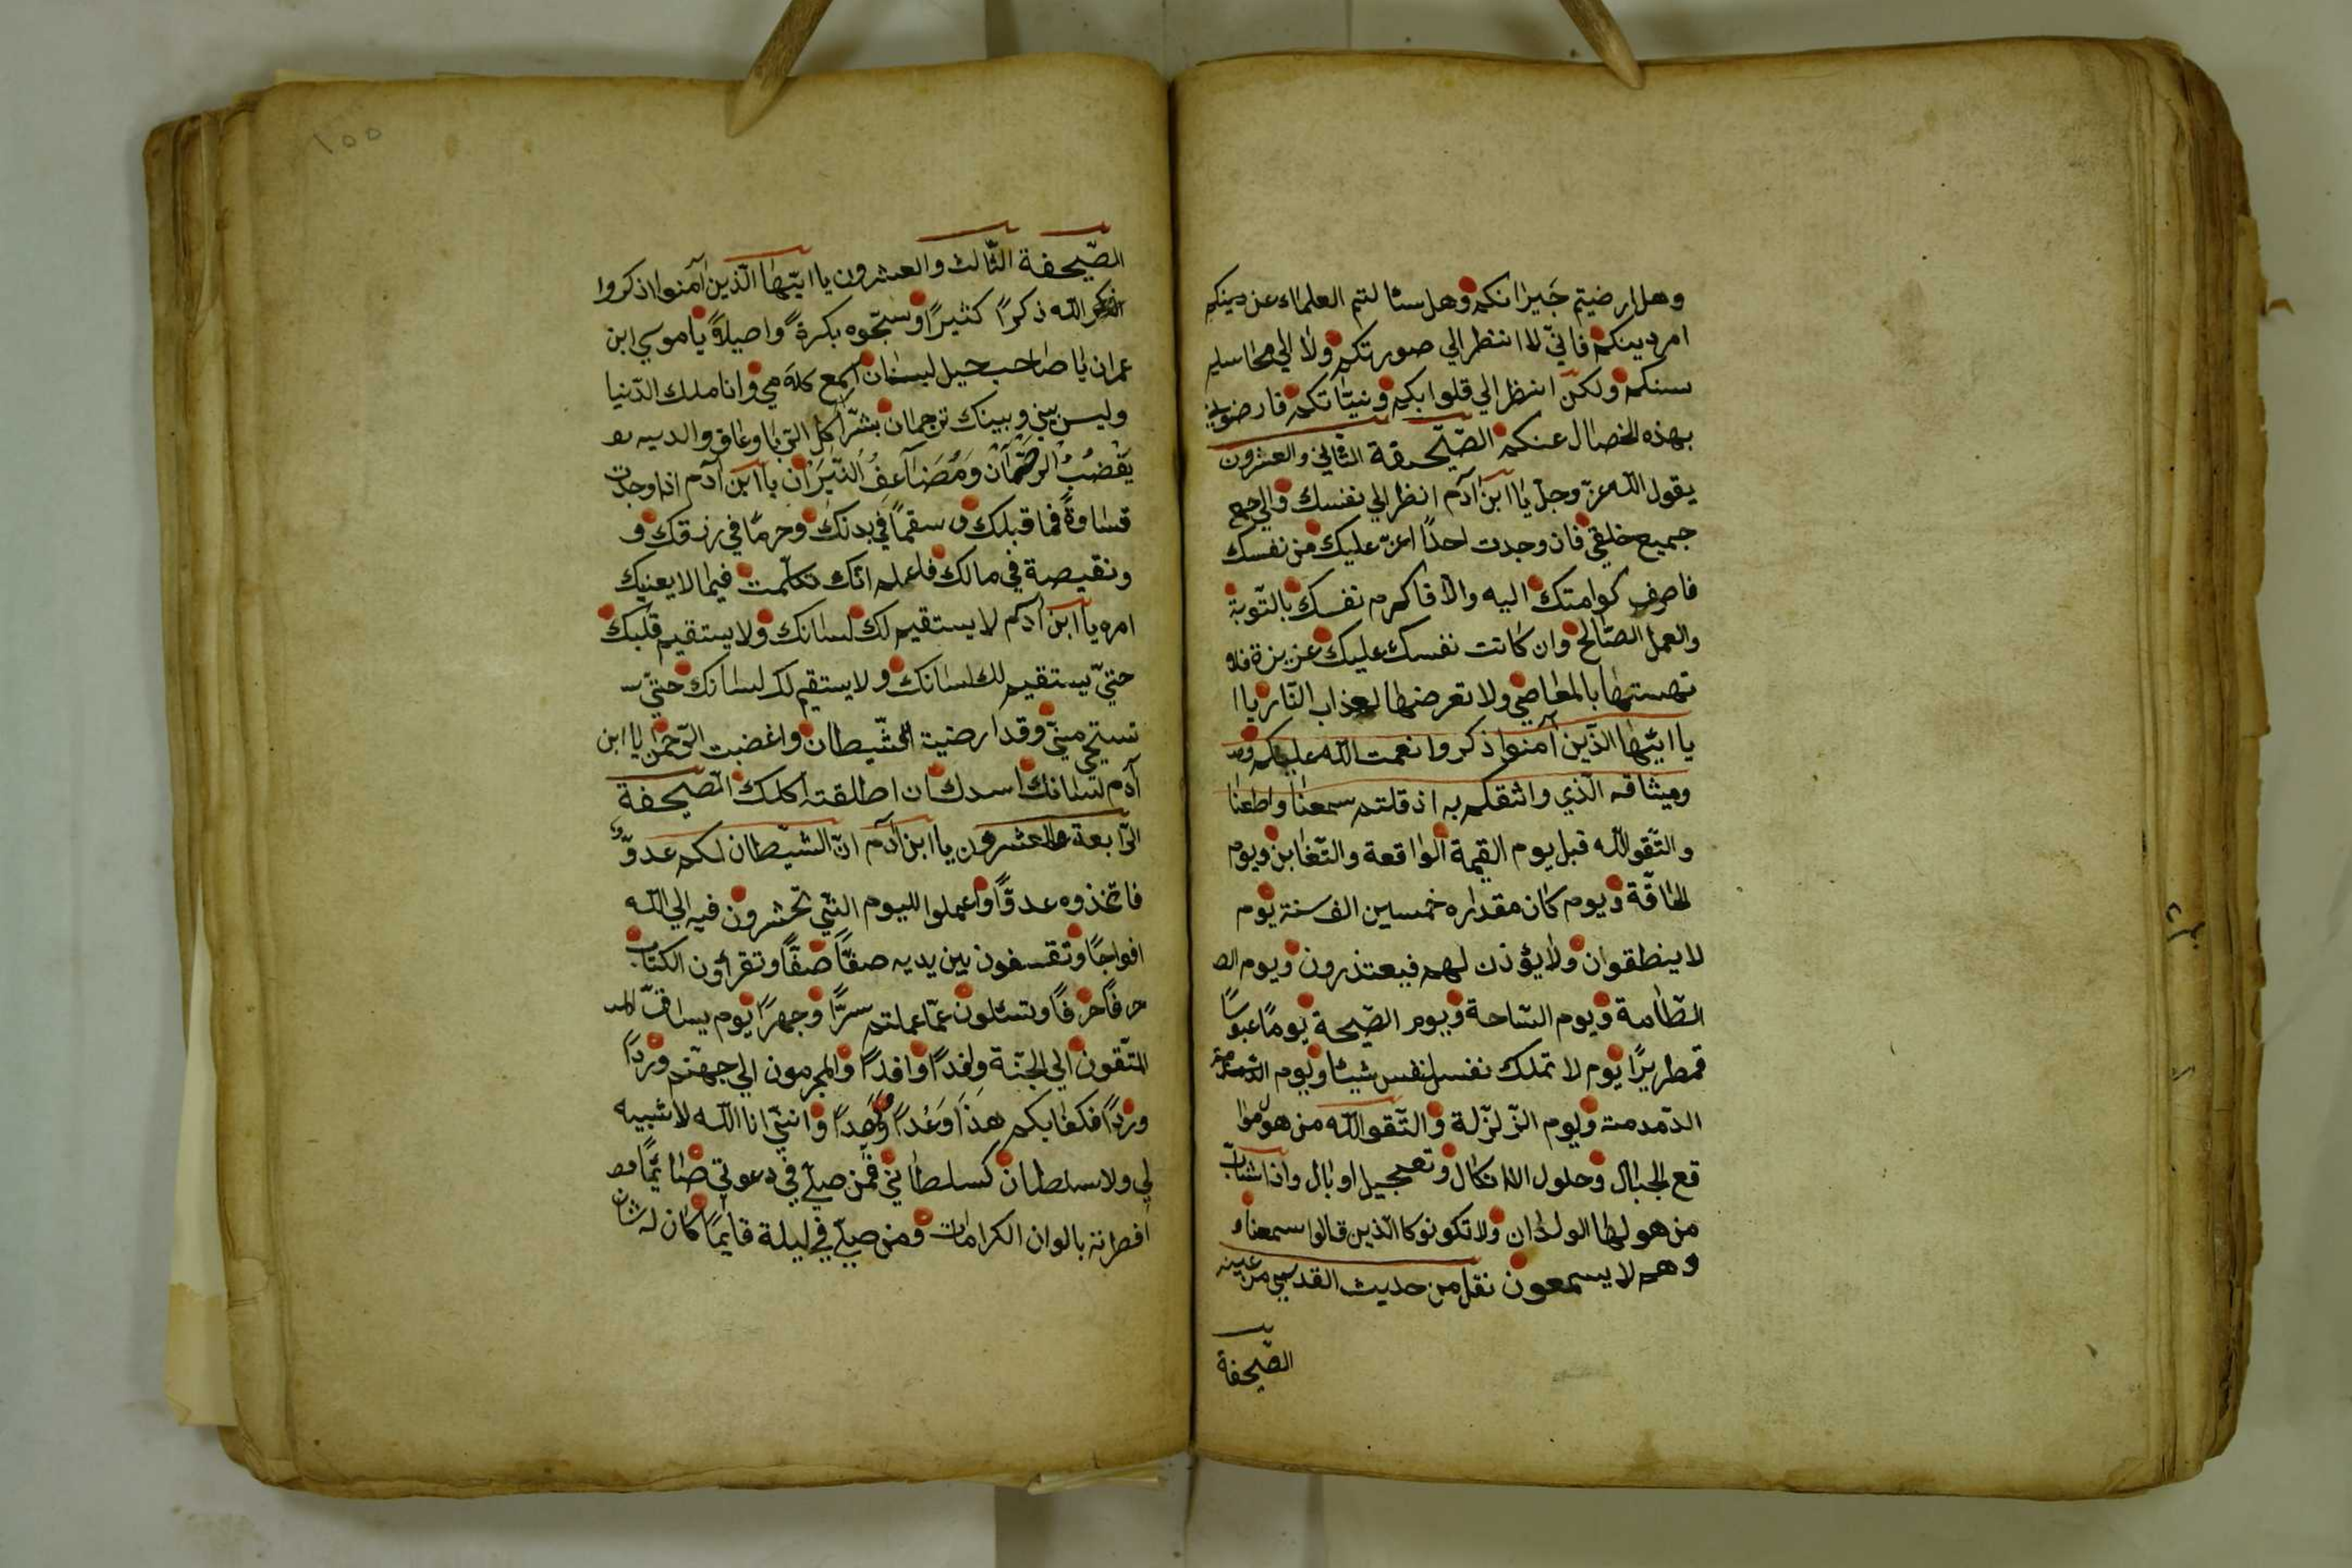 وهل ارضيتم جَيرانكم وهل سئا لتم العلماء عن دينكم
امر دينكم فانّي لا انتظر الي صورتكم ولا الي محاسليم
سنكم ولكن انتظر الي قلوابكم ونيّاتكم فارضوا يني
بهذه الخصال عنكم الصّحيقة الثّاني والعشرون
يقول اللّه عزّ وجلّ ياا ابن آدم انظر الي نفسك والي جمع
جميع خلقي فان وجدت احدًا اعزّ عليك من نفسك
فاصرف كوامتك اليه والّا فاكرم نفسك بالتّوبة
والعمل الصّالح وان كانت نفسك عليك عزيزة فلا
تهستنها بالمعاصي ولا تعرضنها لعذاب النّار ياا
يا ايّها الذّين آمنوا ذكروا نعمت اللّه عليكم ومـ
وميثاقه الّذي واثقكم به اذ قلتم سمعنا واطعنا
والتّقو اللّه قبل يوم القيمة الواقعة والتّغابن ويوم
الحاقّة ويوم كان مقداره خمسين الف سنة يوم
لا ينطقوان ولا يؤذن لهم فيعتذرون ويوم الطـ
الطّامة ويوم السّاحة ويوم الصّيحة يومًا عبوسًا
قمطريرًا يوم لا تملك نفس لنفس شيئا ويوم الدّمدمة
الدّمدمة ويوم الزّلزلة والتّقو اللّه من هو موا
قع الجبال وحلول الانكال وتعجيل اوبال واذا شاب
من هولها الولدان ولا تكونوكا الّذين قالوا سمعنا و
وهم لا يسمعون نقل من حديث القدسي من عينه
الصّحيفة
١٥٥
الصّيحفة الثّالث والعشرون يا ايّها الّذين آمنوا اذكروا
اللّه ذكرًا كثيرًا وسبّحوه بكرةً واصيلاً يا موسي ابن
عمران يا صاحب حيل لبسنان اسمع كلامي وانا ملك الدّنيا
وليس بيني وبينك ترجمان بشّر آكل الرّبا وعاق والديه بـ
يَغْضبُ الرحمان وَمُضَاعِفُ النّيَرَان يا ابن آدم اذا وجدت
قساوةً فما قبلك و سقمًا في بدنك وحرمًا في رزقك و
ونقيصة في مالك فاعلم انّك تكلّمت فيما لا يعنيك
امره يا ابن آدم لا يستقيم لك لسانك ولا يستقيم قلبك
حتيّ يستقيم لك لسانك ولا يستقيم لك لسانك حتيّ
تستحي منيّ وقد ارضية الشّيطان واغضبت الرّحمن يا ابن
آدم لسانك اسدك ان اطلقته اكلك الصّحيفة
الرّابعة والعشرون يا ابن آدم انّ الشّيطان لكم عدوّ
فاتّخذوه عدوًّا واعملوا لليوم الّتي تحشرون فيه الي اللّه
افواجًا وتقسفون بين يديه صفًّا صفًّا وتقرأون الكتاب
حرفًا حرفًا وتسئلون عمّا عملتم سرًّا وجهرًا يوم يساقّ المـ
المتّقون الي الجنّة وفدًا وافدًا والمجرمون الي جهنّم وردًا
وردًا فكفا بكم هذَا وَعْدًا وَعْدًا وانّني انا اللّه لا شبيه
لي ولا سلطان كسلطاني فمن صلّي في دعوتي صائمًا
افطرته بالوان الكرامات ومن صلّي في ليلة قايمًا كان له شان